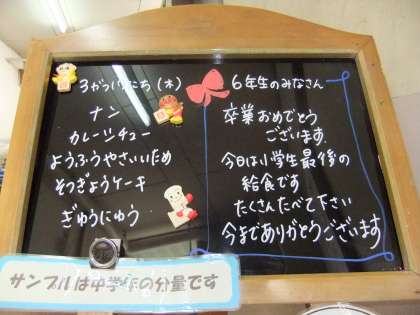 3がつ11にち(木)
ナン
カレーシチュー
ようふうやさいいため
そつぎょうケーキ
ぎゅうにゅう
6年生のみなさん
卒業おめでとう
ございます
今日は小学生最後の
給食です
たくさんたべて下さい
今までありがとうございます
サンプルは中学年の分量です